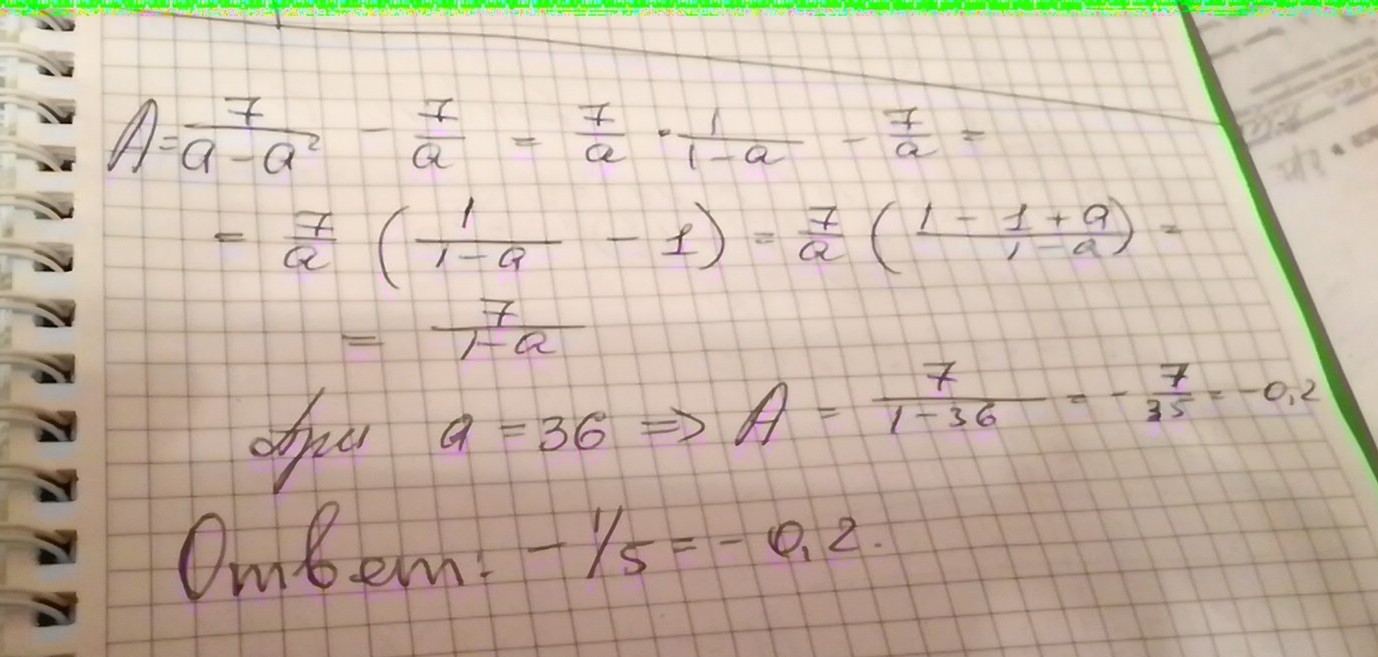 A = 7/(a - a²) - 7/a = 7/a · 1/(1-a) - 7/a =
= 7/a (1/(1-a) - 1) = 7/a ((1 - 1 + a)/(1-a)) =
= 7/(1-a)
при a = 36 => A = 7/(1-36) = -7/35 = -0,2
Ответ: - 1/5 = - 0,2.